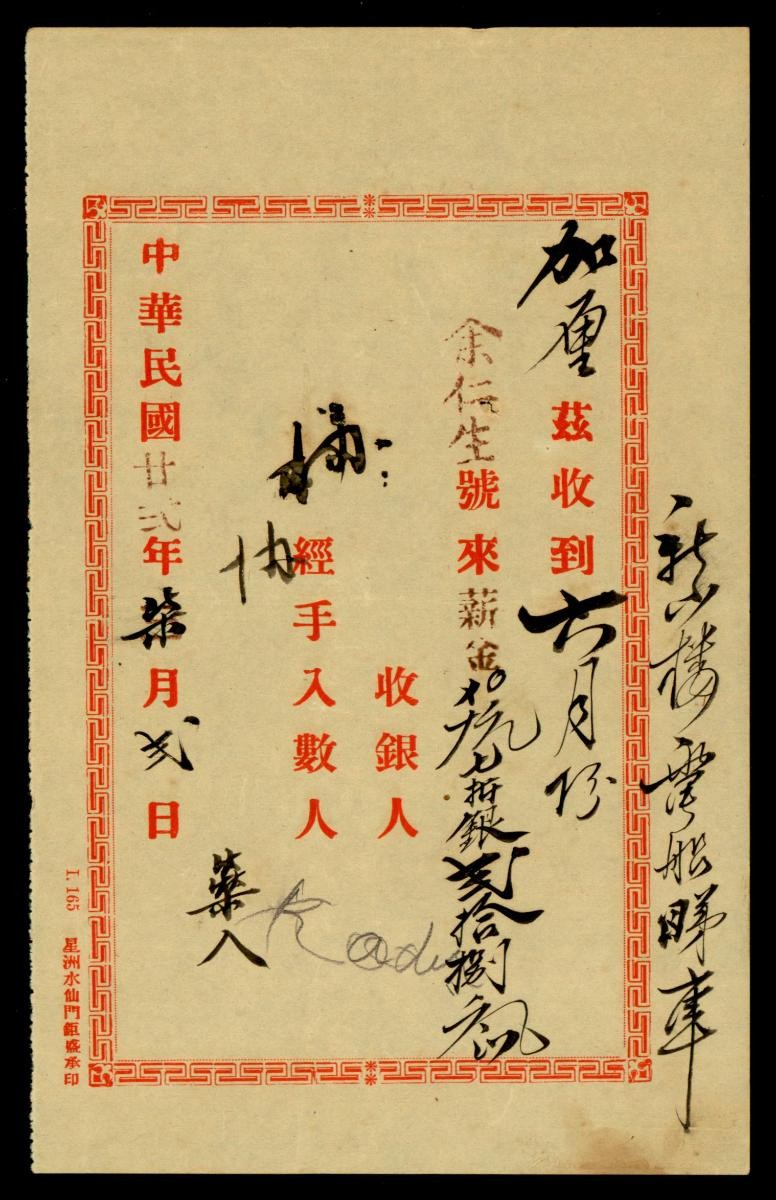 新山樓電船睇車
加厘茲收到六月份
余仁生號來薪金四十元七折銀弍拾捌元
收銀人
經手入數人
中華民國廿弍年柒月弍日
藥入
L. 165 星洲水仙門鉅盛承印